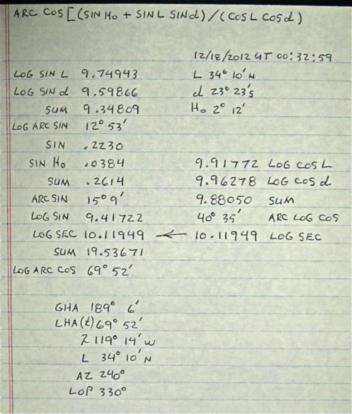 ARC COS [(SIN Ho + SIN L SIN d) / (COS L COS d)
12/18/2012 UT 00:32:59
LOG SIN L 9.74943 L 34° 10' N
LOG SIN d 9.59866 d 23° 23's
SUM 9.34809 Ho 2° 12'
LOG ARC SIN 12° 53'
SIN .2230
SIN Ho .0384 9.91772 LOG COS L
SUM .2614 9.96278 LOG COS d
ARC SIN 15° 9' 9.88050 SUM
LOG SIN 9.41722 40° 35' ARC LOG COS
LOG SEC 10.11949 ← 10.11949 LOG SEC
SUM 19.53671
LOG ARC COS 69° 52'
GHA 189° 6'
LHA(t) 69° 52'
λ 119° 14' W
L 34° 10' N
AZ 240°
LOP 330°